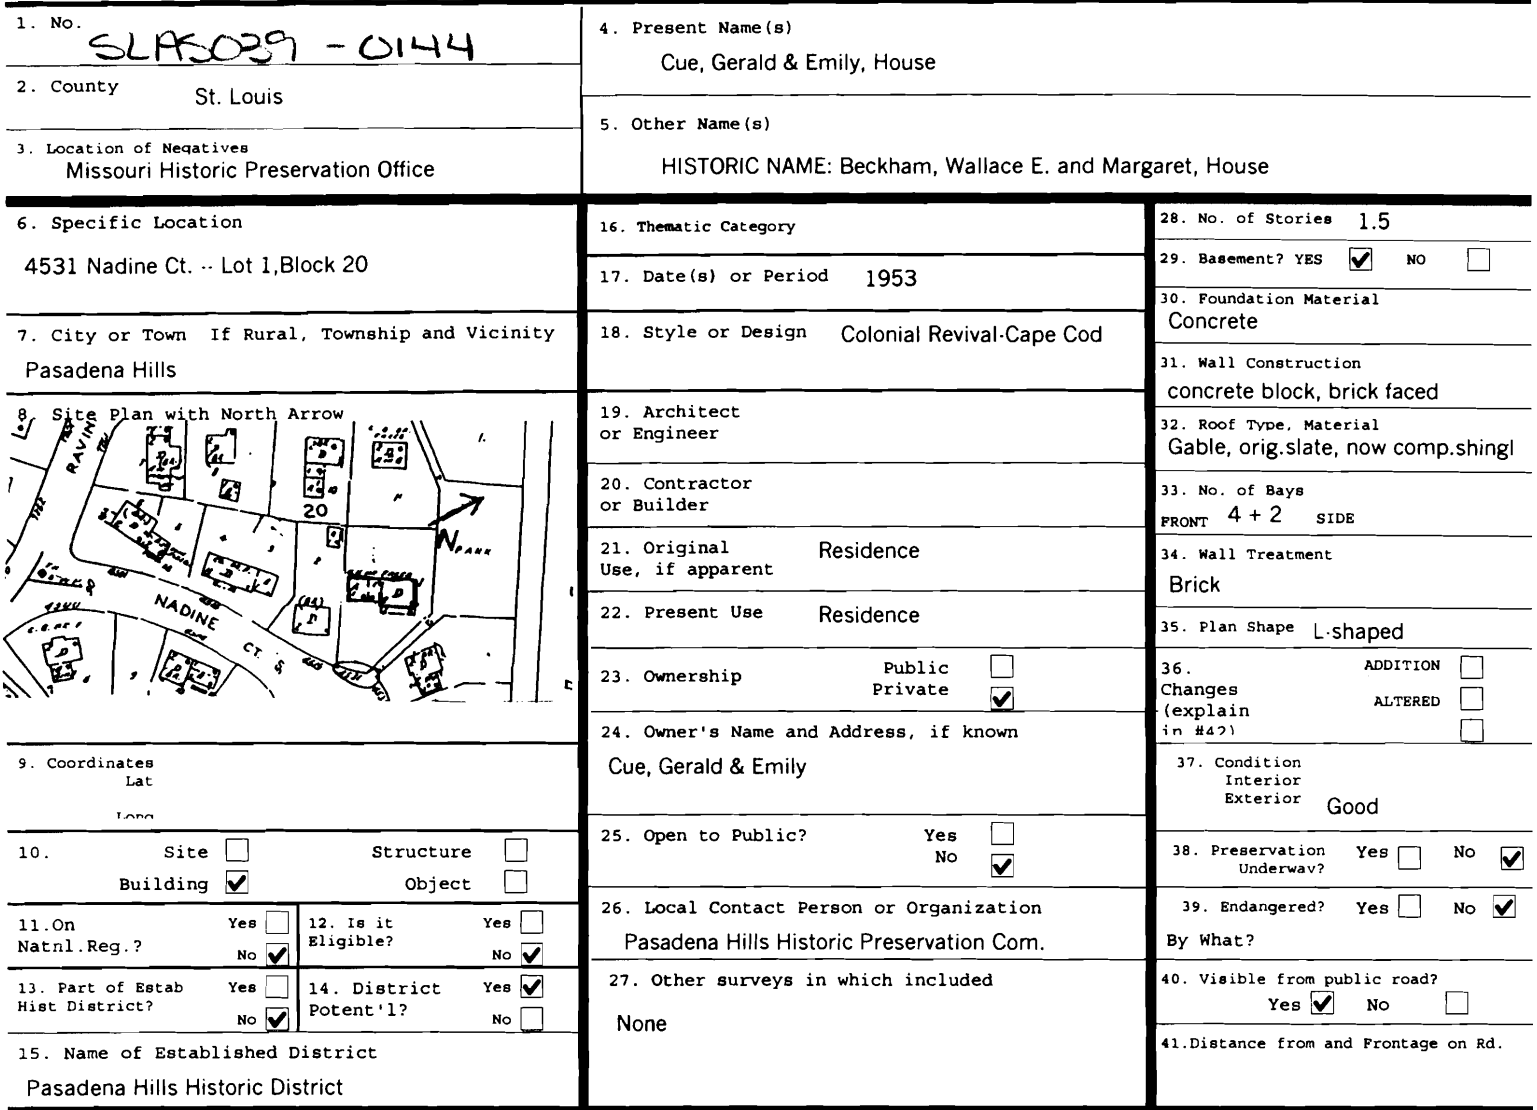 1. No.
SLAS039 - 0144
2. County
St. Louis
3. Location of Negatives
Missouri Historic Preservation Office
4. Present Name(s)
Cue, Gerald & Emily, House
5. Other Name(s)
HISTORIC NAME: Beckham, Wallace E. and Margaret, House
6. Specific Location
4531 Nadine Ct. -- Lot 1,Block 20
7. City or Town If Rural, Township and Vicinity
Pasadena Hills
8. Site Plan with North Arrow
RAVINE
20
N
PARK
NADINE CT. S.
9. Coordinates
Lat
Long
10. Site Structure
Building Object
11.On Yes
Natnl.Reg.? No
12. Is it Yes
Eligible? No
13. Part of Estab Yes
Hist District? No
14. District Yes
Potent'l? No
15. Name of Established District
Pasadena Hills Historic District
16. Thematic Category
17. Date(s) or Period 1953
18. Style or Design Colonial Revival-Cape Cod
19. Architect
or Engineer
20. Contractor
or Builder
21. Original Residence
Use, if apparent
22. Present Use Residence
23. Ownership Public
Private
24. Owner's Name and Address, if known
Cue, Gerald & Emily
25. Open to Public? Yes
No
26. Local Contact Person or Organization
Pasadena Hills Historic Preservation Com.
27. Other surveys in which included
None
28. No. of Stories 1.5
29. Basement? YES NO
30. Foundation Material
Concrete
31. Wall Construction
concrete block, brick faced
32. Roof Type, Material
Gable, orig.slate, now comp.shingl
33. No. of Bays
FRONT 4 + 2 SIDE
34. Wall Treatment
Brick
35. Plan Shape L-shaped
36. ADDITION
Changes
(explain ALTERED
in #42)
37. Condition
Interior
Exterior Good
38. Preservation Yes No
Underway?
39. Endangered? Yes No
By What?
40. Visible from public road?
Yes No
41.Distance from and Frontage on Rd.